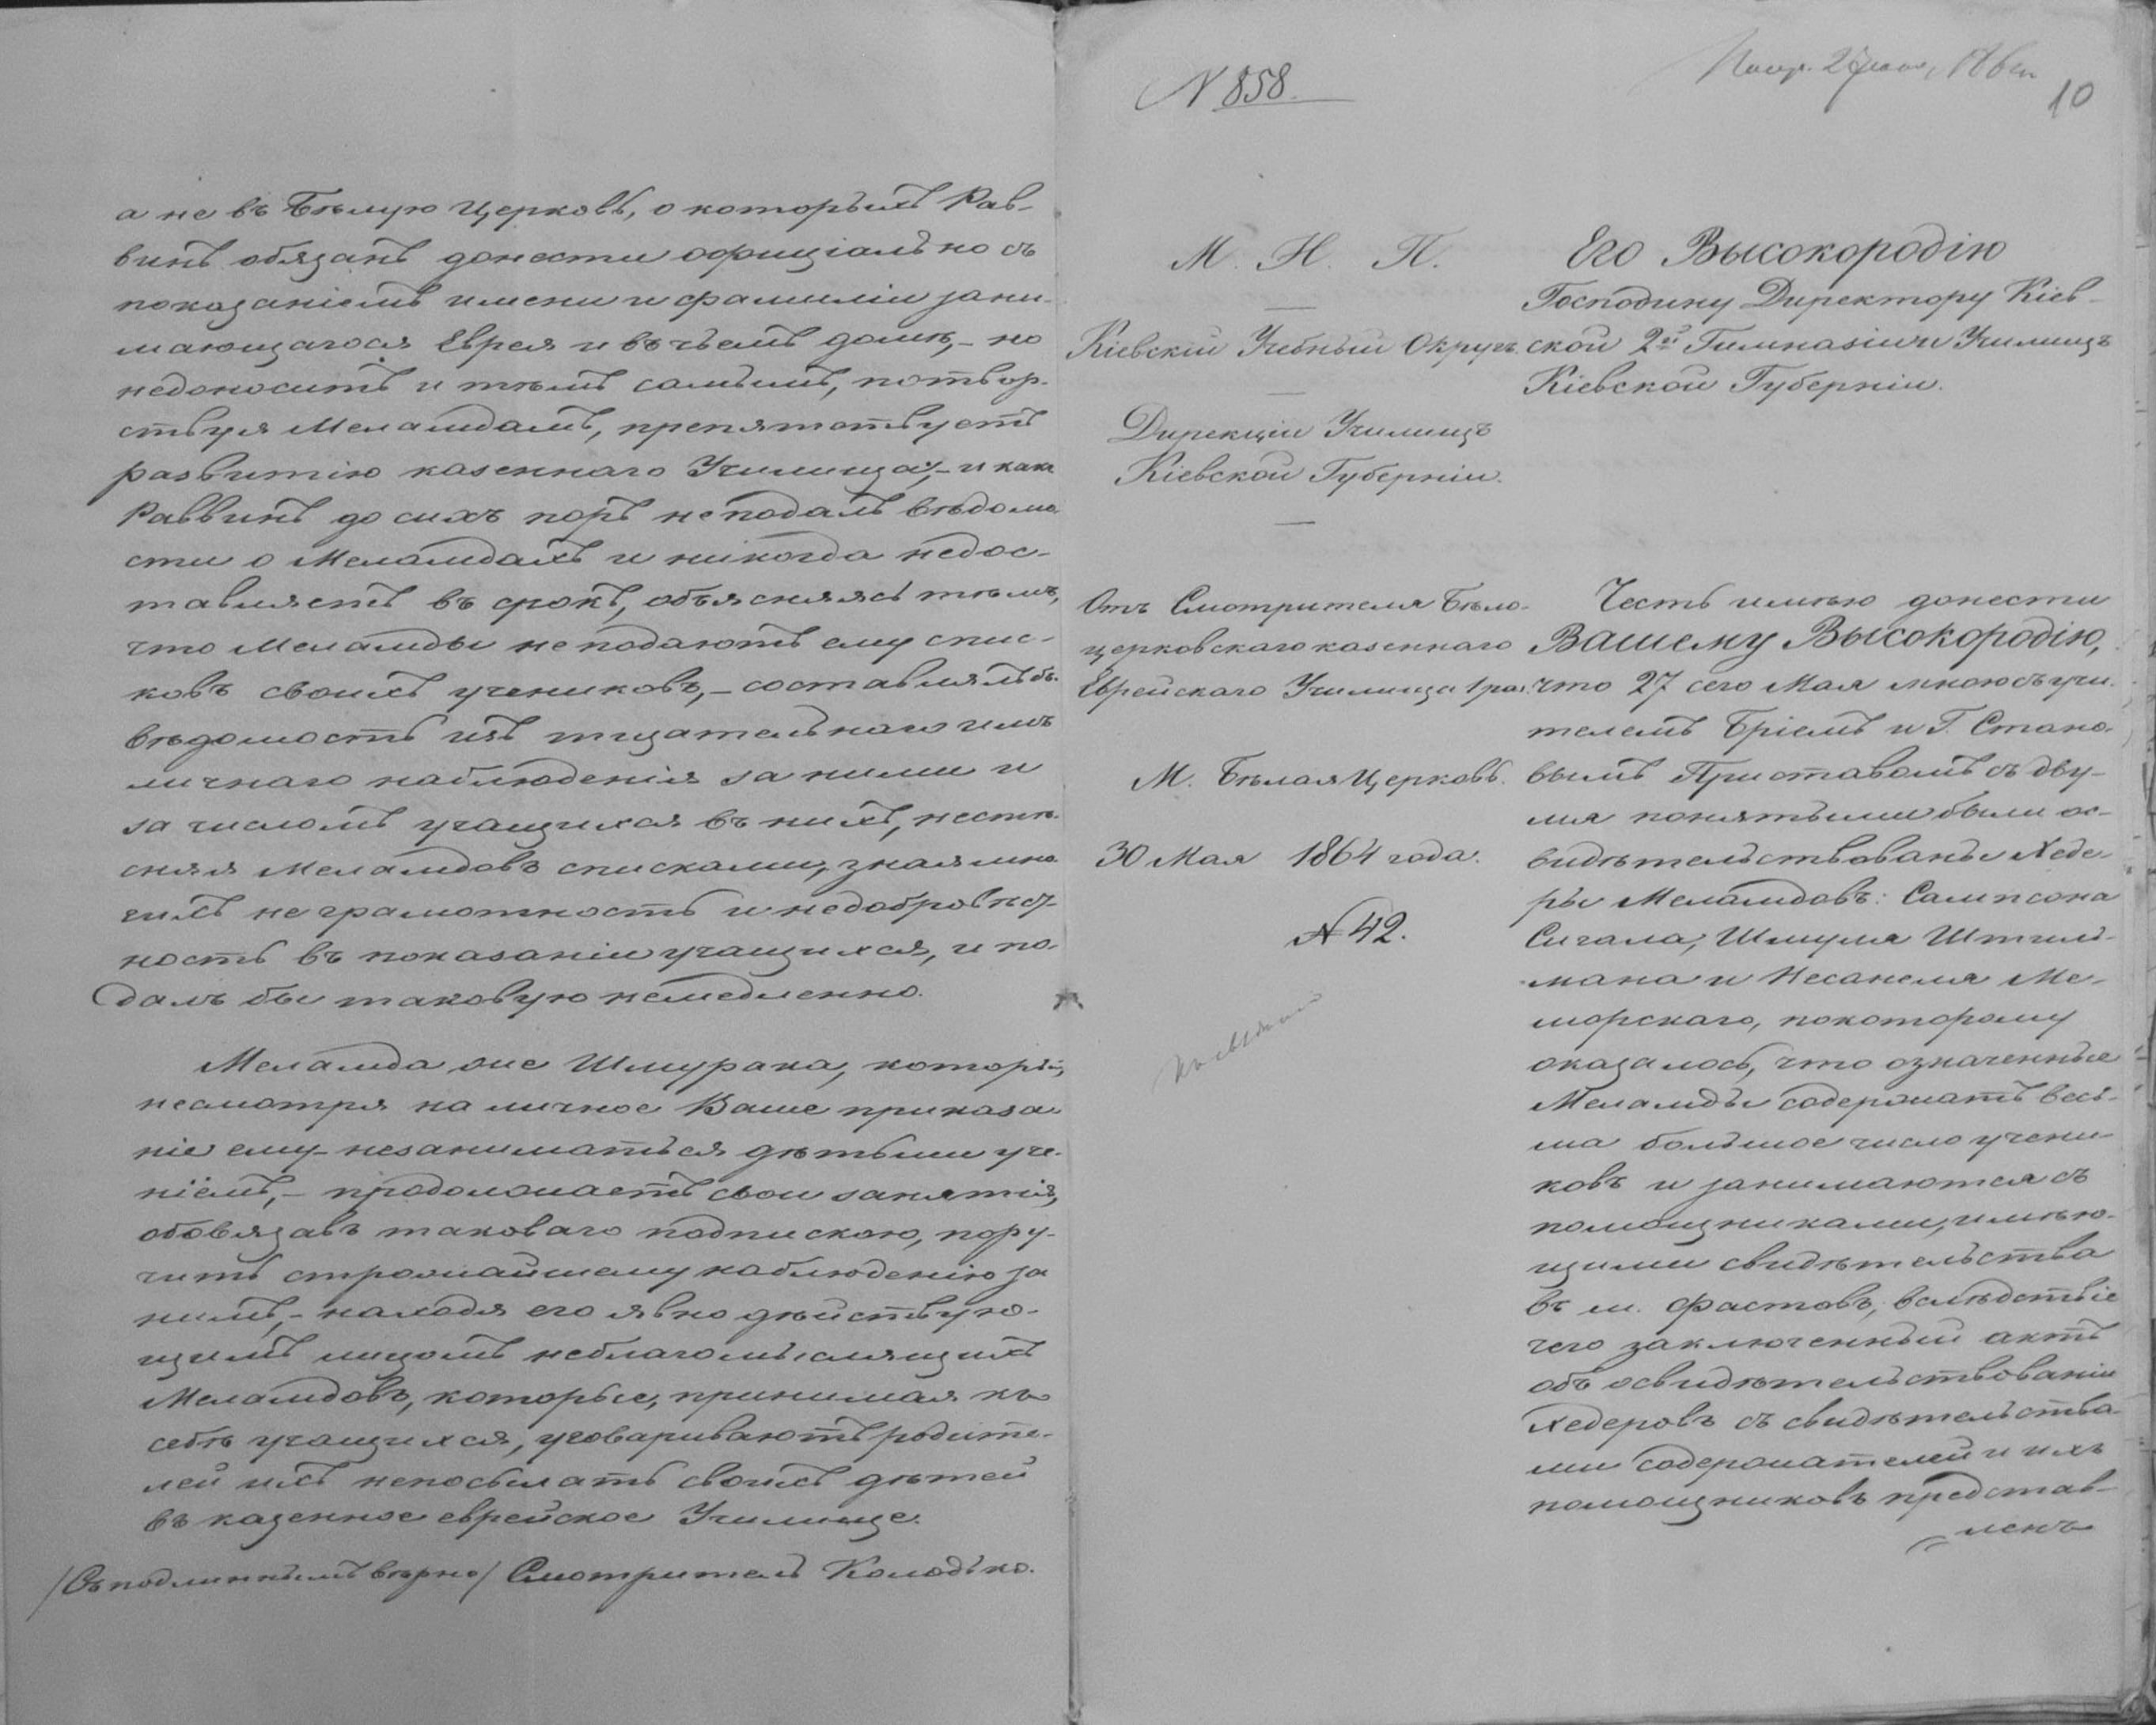 а не въ Бѣлую Церковь, о которыхъ Рав-
винъ обязанъ донести оффиціально съ
показаніемъ имени и фамиліи зани-
мающагося Еврея и въ чьемъ домѣ, – но
недоноситъ и тѣмъ самымъ, потвор-
ствуя Меламдамъ, препятствуетъ
развитію казеннаго Училища; – и какъ
Раввинъ до сихъ поръ неподалъ вѣдомо-
сти о Меламдахъ и никогда недос-
тавляетъ въ срокъ, объясняясь тѣмъ,
что Меламды неподаютъ ему спис-
ковъ своихъ учениковъ, – составлялъ бы
вѣдомость изъ тщательнаго имъ
личнаго наблюденія за ними и
за числомъ учащихся въ нихъ, нестѣ-
сняя Меламдовъ списками, зная мно-
гихъ неграмотность и недобросовѣст-
ность въ показаніи учащихся, и по-
далъ бы таковую немедленно.
Меламда же Шмурака, который,
несмотря на личное Ваше приказа-
ніе ему незаниматься дѣтьми уче-
ніемъ, – продолжаетъ свои занятія,
обовязавъ таковаго подпискою, пору-
чить строжайшему наблюденію за
нимъ, – находя его явно дѣйствую-
щимъ лицомъ неблагомыслящихъ
Меламдовъ, которые, принимая къ
себѣ учащихся, уговариваютъ родите-
лей ихъ непосылать своихъ дѣтей
въ казенное еврейское Училище.
/Съ подлиннымъ вѣрно/ Смотритель Колодько.
N 858.
10
М. Н. П.
Кіевскій Учебный Округъ.
Дирекціи Училищъ
Кіевской Губерніи.
Отъ Смотрителя Бѣло-
церковскаго казеннаго
Еврейскаго Училища 1 раз.
М. Бѣлая Церковь.
30 Мая 1864 года.
№ 42.
Его Высокородію
Господину Директору Кіев-
ской 2й Гимназіи и Училищъ
Кіевской Губерніи.
Честь имѣю донести
Вашему Высокородію,
что 27 сего Мая мною съ учи-
телемъ Бріемъ и Г. Стано-
вымъ Приставомъ съ дву-
мя понятыми были ос-
видѣтельствованы Хеде-
ры Меламдовъ: Сампсона
Сигала, Шмуля Штиль-
мана и Несанеля Ме-
морскаго, покоторому
оказалось, что означенные
Меламды содержатъ весь-
ма большое число учени-
ковъ и занимаются съ
помощниками, имѣю-
щими свидѣтельства
въ м. Фастовъ, вслѣдствіе
чего заключенный актъ
объ освидѣтельствованіи
Хедеровъ съ свидѣтельства-
ми содержателей и ихъ
помощниковъ представ-
ленъ